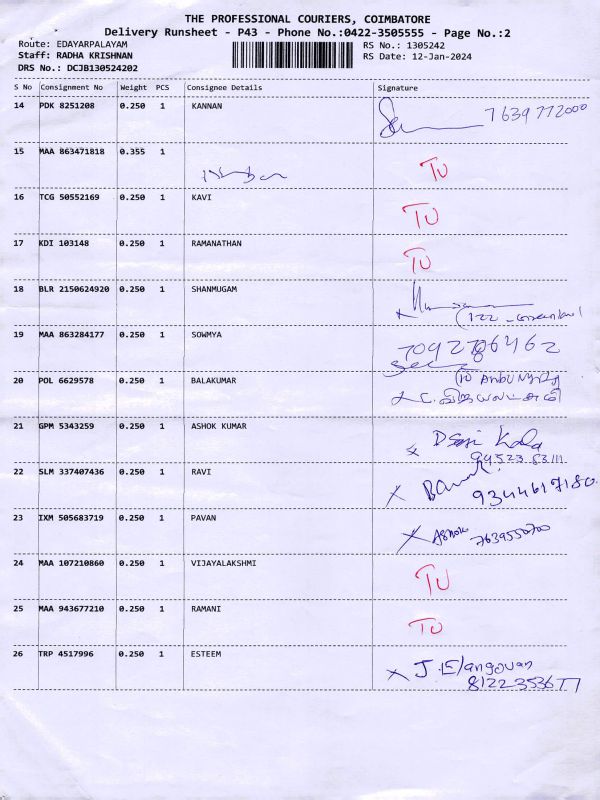 THE PROFESSIONAL COURIERS, COIMBATORE
Delivery Runsheet - P43 - Phone No.:0422-3505555 - Page No.:2
Route: EDAYARPALAYAM RS No.: 1305242
Staff: RADHA KRISHNAN RS Date: 12-Jan-2024
DRS No.: DCJB130524202
S No Consignment No Weight PCS Consignee Details Signature
14 PDK 8251208 0.250 1 KANNAN 7639772000
15 MAA 863471818 0.355 1 TU
16 TCG 50552169 0.250 1 KAVI TU
17 KDI 103148 0.250 1 RAMANATHAN TU
18 BLR 2150624920 0.250 1 SHANMUGAM
19 MAA 863284177 0.250 1 SOWMYA
20 POL 6629578 0.250 1 BALAKUMAR
21 GPM 5343259 0.250 1 ASHOK KUMAR
94523 83111
22 SLM 337407436 0.250 1 RAVI 9344617180
23 IXM 505683719 0.250 1 PAVAN Ashok 7639550700
24 MAA 107210860 0.250 1 VIJAYALAKSHMI TU
25 MAA 943677210 0.250 1 RAMANI TU
26 TRP 4517996 0.250 1 ESTEEM J.Elangovan
8122353677